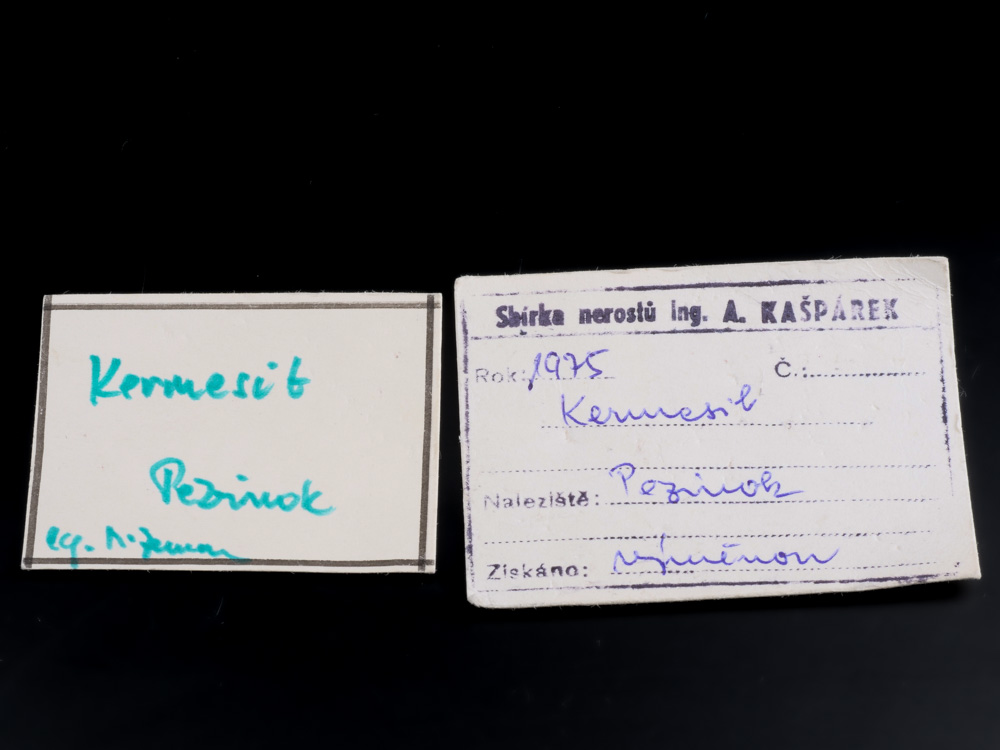 Kermesit
Pezinok
Sbírka nerostů ing. A. KAŠPÁREK
Rok: 1975 Č.:
Kermesit
Naleziště: Pezinok
Získáno: výměnou